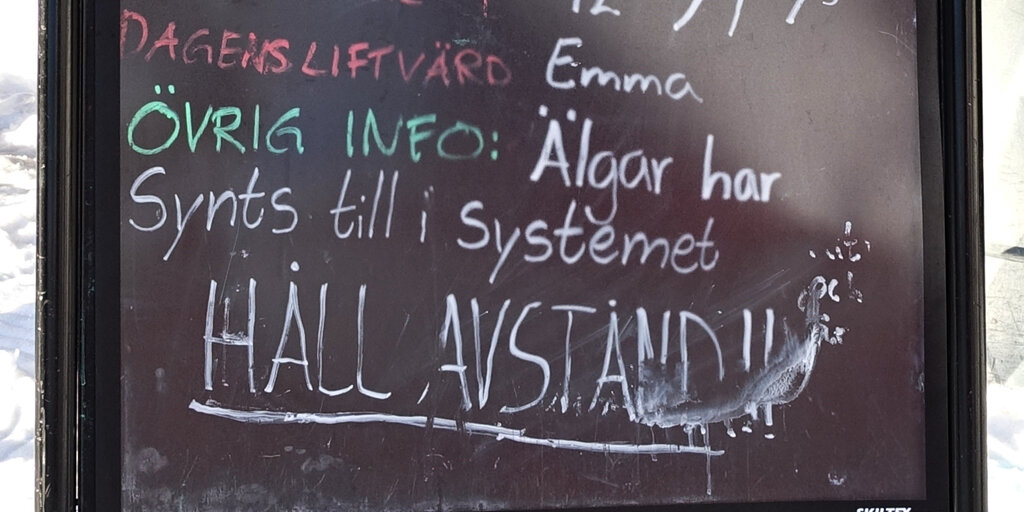 DAGENS LIFTVÄRD Emma
ÖVRIG INFO: Älgar har
Synts till i systemet
HÅLL AVSTÅND!!